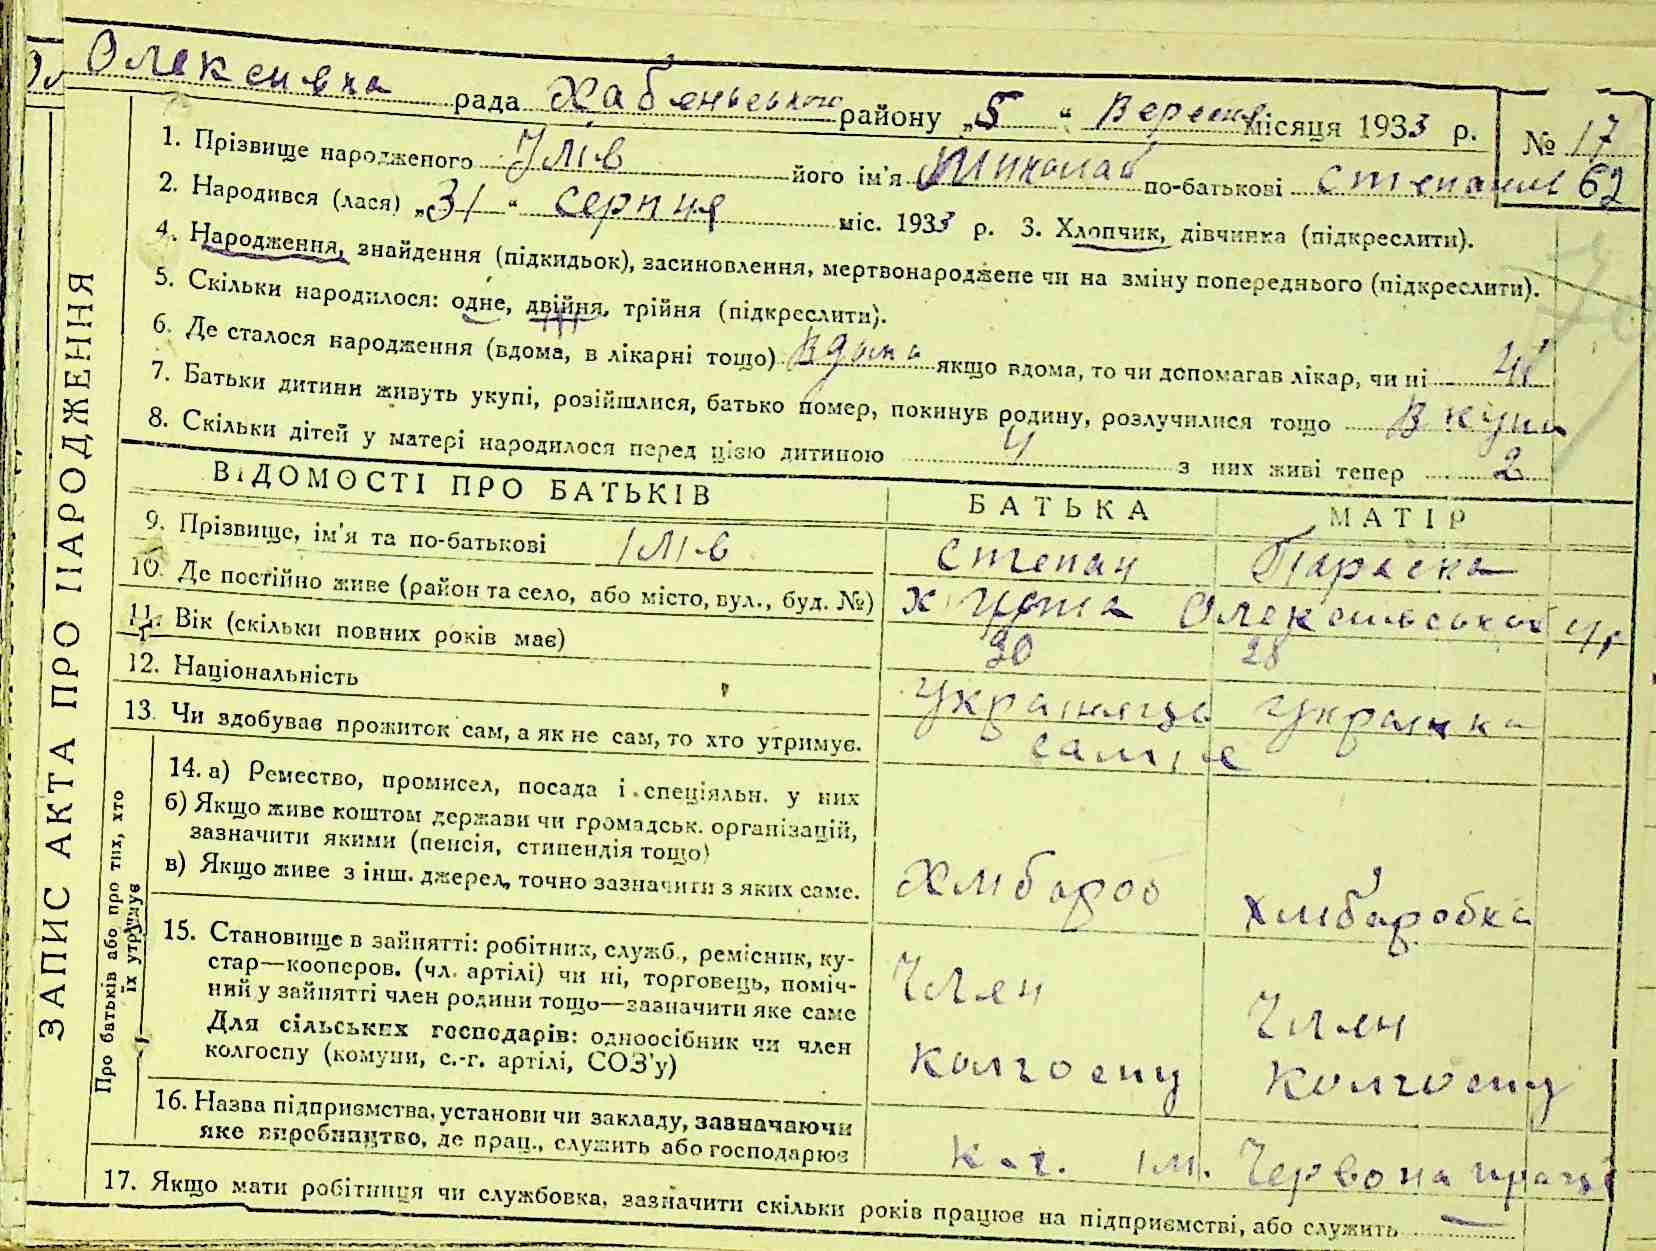 Олексивка рада Хабенського району „5“ Вересня місяця 1933 р. № 17
1. Прізвище народженого Іллів його ім'я Миколай по-батькові Степанів 62
2. Народився (лася) „31“ серпня міс. 1933 р. 3. Хлопчик, дівчинка (підкреслити).
4. Народження, знайдення (підкидьок), засиновлення, мертвонароджене чи на зміну попереднього (підкреслити).
5. Скільки народилося: одне, двійня, трійня (підкреслити).
6. Де сталося народження (вдома, в лікарні тощо) вдома якщо вдома, то чи допомагав лікар, чи ні
7. Батьки дитини живуть укупі, розійшлися, батько помер, покинув родину, розлучилися тощо вкупи
8. Скільки дітей у матері народилося перед цією дитиною 4 з них живі тепер 2
ВІДОМОСТІ ПРО БАТЬКІВ БАТЬКА МАТІР
9. Прізвище, ім'я та по-батькові Степан Параска
10. Де постійно живе (район та село, або місто, вул., буд. №)
11. Вік (скільки повних років має) 30 28
12. Національність українець українка
13. Чи здобував прожиток сам, а як не сам, то хто утримує.
14. а) Ремество, промисел, посада і спеціяльн. у них
б) Якщо живе коштом держави чи громадськ. організацій,
зазначити якими (пенсія, стипендія тощо)
в) Якщо живе з інш. джерел, точно зазначити з яких саме. Хлибароб хлибаробка
15. Становище в зайнятті: робітник, служб., ремісник, ку-
стар—кооперов. (чл. артілі) чи ні, торговець, поміч-
ний у зайнятті член родини тощо—зазначити яке саме Член Член
Для сільських господарів: одноосібник чи член
колгоспу (комуни, с.-г. артілі, СОЗ'у) колгоспу колгоспу
16. Назва підприємства, установи чи закладу, зазначаючи
яке виробництво, де прац., служить або господарює к.г. ім. Червона праця
17. Якщо мати робітниця чи службовка, зазначити скільки років працює на підприємстві, або служить —
ЗАПИС АКТА ПРО НАРОДЖЕННЯ
Про батьків або про тих, хто
їх утримує